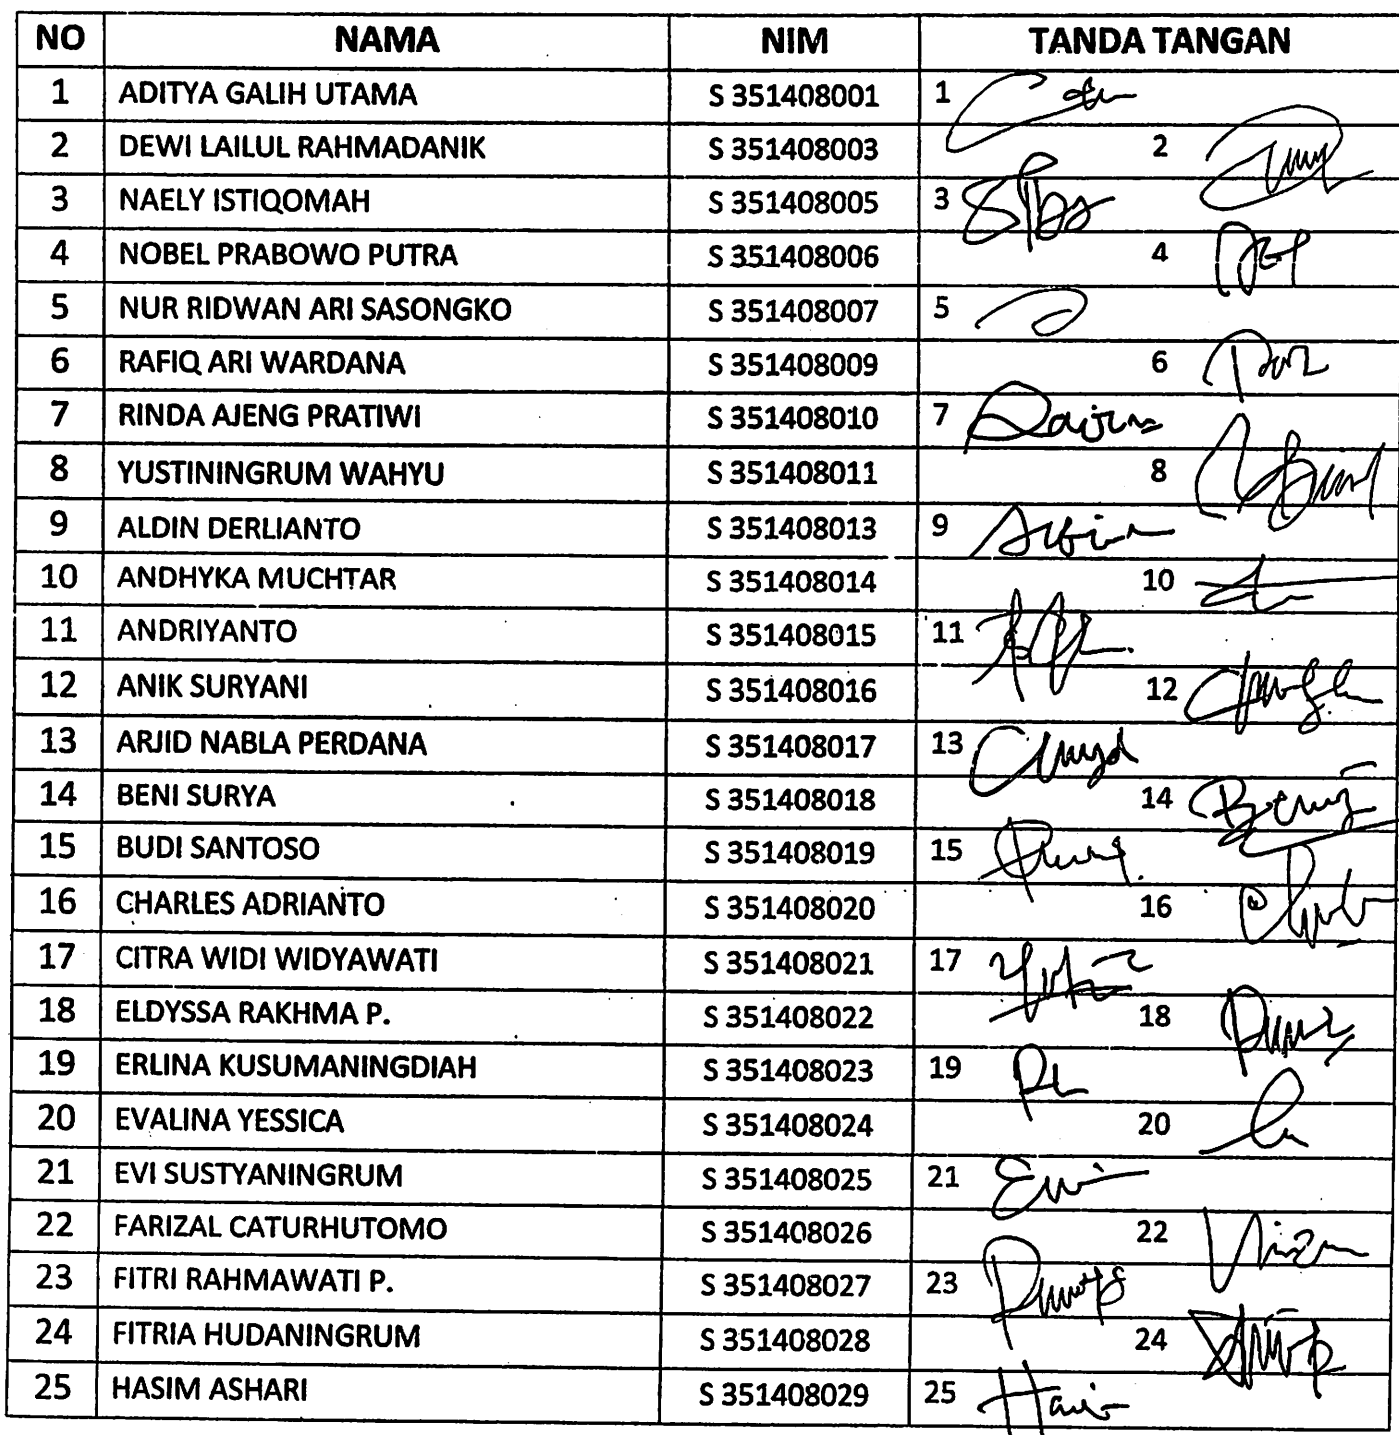 NO NAMA NIM TANDA TANGAN
1 ADITYA GALIH UTAMA S 351408001 1
2 DEWI LAILUL RAHMADANIK S 351408003 2
3 NAELY ISTIQOMAH S 351408005 3
4 NOBEL PRABOWO PUTRA S 351408006 4
5 NUR RIDWAN ARI SASONGKO S 351408007 5
6 RAFIQ ARI WARDANA S 351408009 6
7 RINDA AJENG PRATIWI S 351408010 7
8 YUSTININGRUM WAHYU S 351408011 8
9 ALDIN DERLIANTO S 351408013 9
10 ANDHYKA MUCHTAR S 351408014 10
11 ANDRIYANTO S 351408015 11
12 ANIK SURYANI S 351408016 12
13 ARJID NABLA PERDANA S 351408017 13
14 BENI SURYA S 351408018 14
15 BUDI SANTOSO S 351408019 15
16 CHARLES ADRIANTO S 351408020 16
17 CITRA WIDI WIDYAWATI S 351408021 17
18 ELDYSSA RAKHMA P. S 351408022 18
19 ERLINA KUSUMANINGDIAH S 351408023 19
20 EVALINA YESSICA S 351408024 20
21 EVI SUSTYANINGRUM S 351408025 21
22 FARIZAL CATURHUTOMO S 351408026 22
23 FITRI RAHMAWATI P. S 351408027 23
24 FITRIA HUDANINGRUM S 351408028 24
25 HASIM ASHARI S 351408029 25